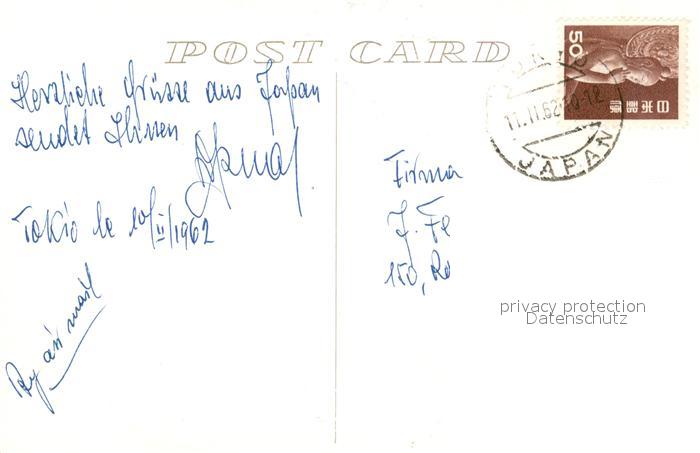 POST CARD
Herzliche Grüsse aus Japan
sendet Ihnen
Tokio le 10/II/1962
By air mail
Firma
J. Fe
150, Ro
privacy protection
Datenschutz
50
日本郵便
11.II.62
JAPAN